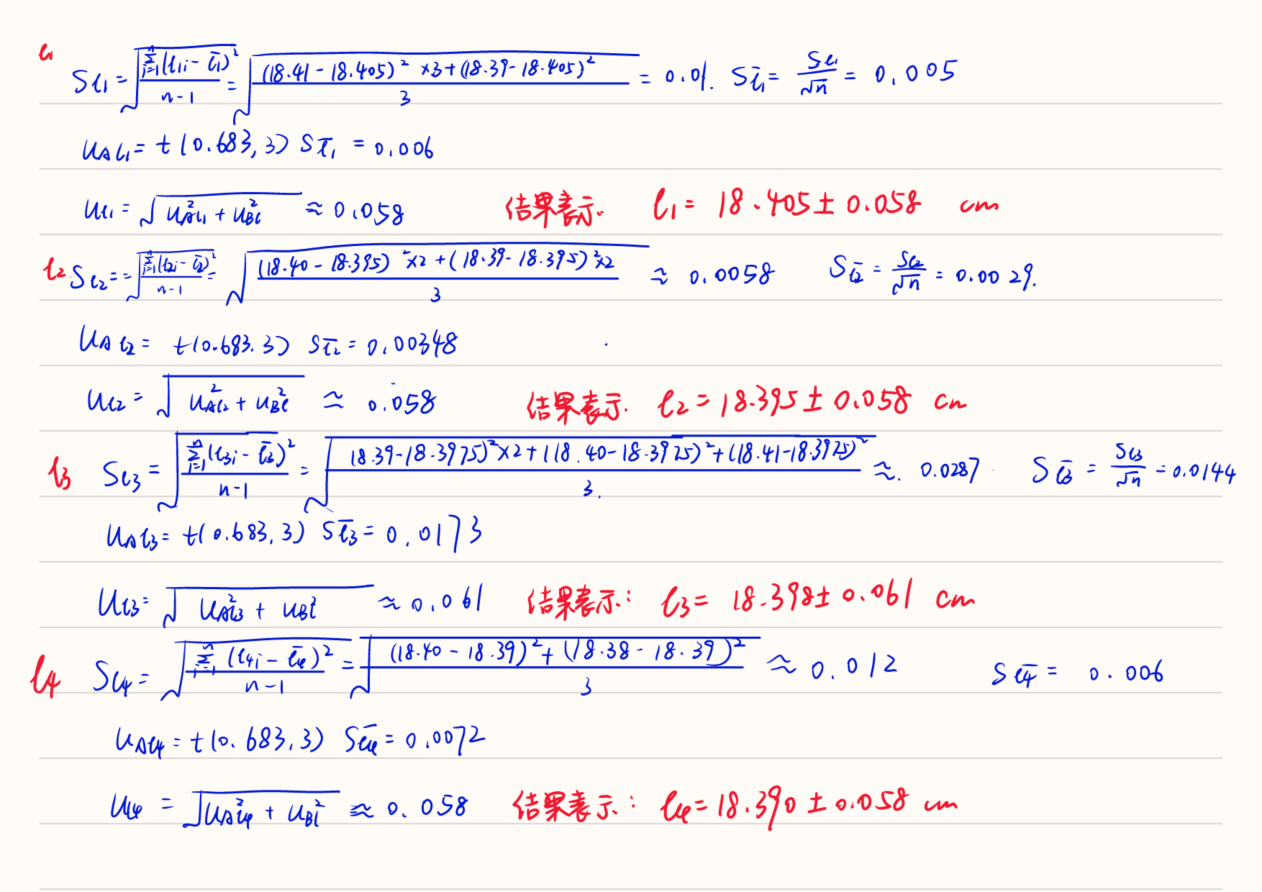 l₁ S_{l₁} = √(Σ_{i=1}^{n}(l_{1i} - l̄₁)² / (n-1)) = √(((18.41 - 18.405)² ×3 + (18.39 - 18.405)²) / 3) = 0.01. S_{l̄₁} = S_{l₁}/√n = 0.005
u_{Al₁} = t(0.683, 3) S_{l̄₁} = 0.006
u_{l₁} = √(u²_{Al₁} + u²_{Bl}) ≈ 0.058 结果表示. l₁ = 18.405 ± 0.058 cm
l₂ S_{l₂} = = √(Σ_{i=1}^{n}(l_{2i} - l̄₂)² / (n-1)) = √(((18.40 - 18.395)² ×2 + (18.39 - 18.395)² ×2) / 3) ≈ 0.0058 S_{l̄₂} = S_{l₂}/√n = 0.0029.
u_{Al₂} = t(0.683.3) S_{l̄₂} = 0.00348
u_{l₂} = √(u²_{Al₂} + u²_{Bl}) ≈ 0.058 结果表示. l₂ = 18.395 ± 0.058 cm
l₃ S_{l₃} = √(Σ_{i=1}^{n}(l_{3i} - l̄₃)² / (n-1)) = √((18.39 - 18.3975)² ×2 + (18.40 - 18.3975)² + (18.41 - 18.3975)² / 3.) ≈. 0.0287 S_{l̄₃} = S_{l₃}/√n = 0.0144
u_{Al₃} = t(0.683, 3) S_{l̄₃} = 0.0173
u_{l₃} = √(u²_{Al₃} + u_{Bl}²) ≈ 0.061 结果表示: l₃ = 18.398 ± 0.061 cm
l₄ S_{l₄} = √(Σ_{i=1}^{n}(l_{4i} - l̄₄)² / (n-1)) = √(((18.40 - 18.39)² + (18.38 - 18.39)²) / 3) ≈ 0.012 S_{l̄₄} = 0.006
u_{Al₄} = t(0.683, 3) S_{l̄₄} = 0.0072
u_{l₄} = √(u²_{Al₄} + u²_{Bl}) ≈ 0.058 结果表示: l₄ = 18.390 ± 0.058 cm